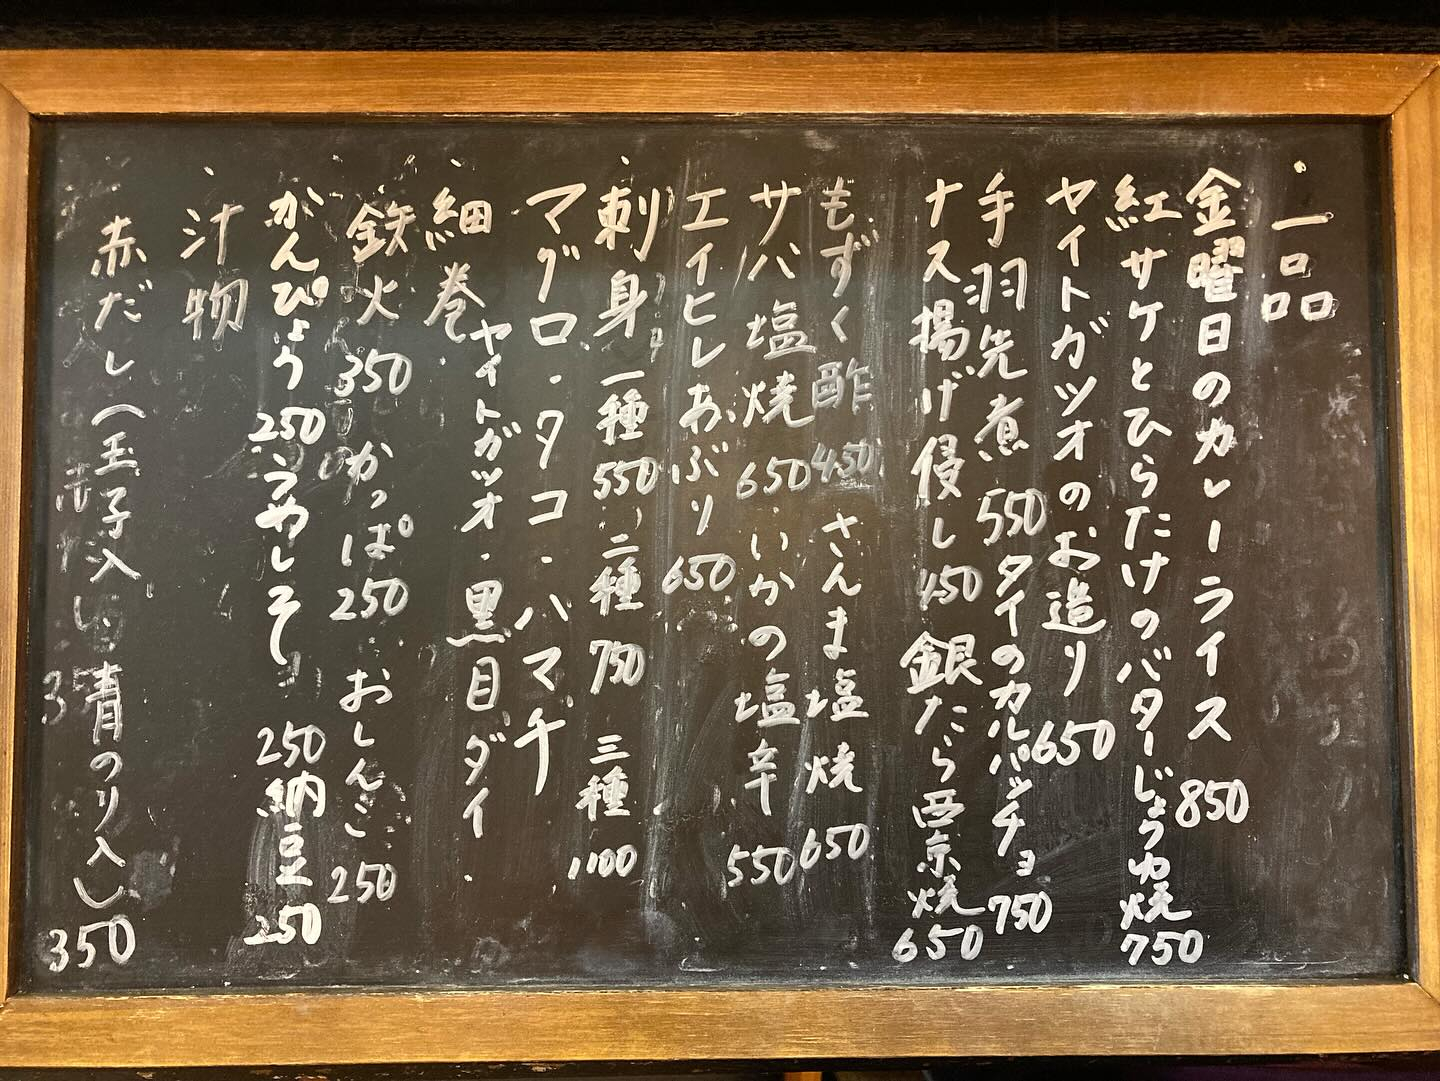 ・一品
金曜日のカレーライス 850
紅サケとひらたけのバターじょうゆ焼 750
ヤイトガツオのお造り 650
手羽先煮 550 タイのカルパッチョ 750
ナス揚げ侵し 450 銀だら西京焼 650
もずく酢 450 さんま塩焼 650
サバ塩焼 650 いかの塩辛 550
エイヒレあぶり 650
・刺身 一種 550 二種 750 三種 1100
マグロ・タコ・ハマチ
ヤイトガツオ・黒目ダイ
・細巻
鉄火 350 かっぱ 250 おしんこ 250
かんぴょう 250 うめしそ 250 納豆 250
・汁物
赤だし(玉子入 青のり入) 350